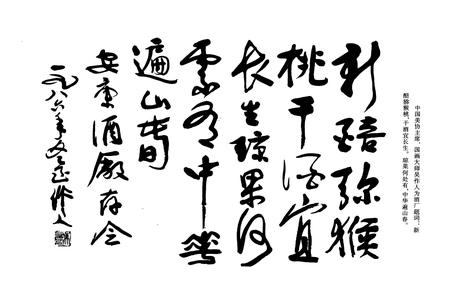 中国美协主席、国画大师吴作人为酒厂题词：新
醅猕猴桃，干酒宜长生。琼果何处有，中华遍山春。
新醅猕猴
桃干酒宜
长生琼果何
处有中华
遍山春
安康酒廠存念
一九八六年吴作人